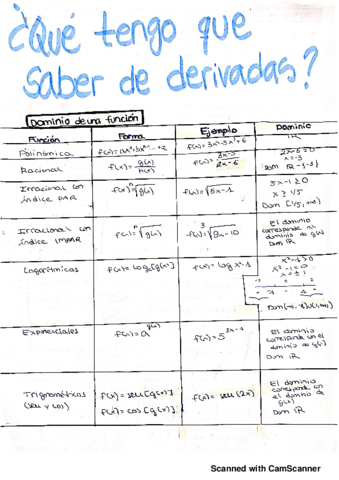 ¿Qué tengo que
saber de derivadas?
Dominio de una función
Función Forma Ejemplo Dominio
Polinómica f(x)=ax^n+bx^n-1...+z f(x)=3x²-5x+6 IR
Racional f(x)= g(x)/h(x) f(x)= 3x-5/2x-6 2x-6=0
x=-3
Dom IR-{-3}
Irracional con
índice PAR f(x)=ⁿ√g(x) f(x)=√5x-1 5x-1≥0
x≥1/5
Dom [1/5,+∞)
Irracional con
índice IMPAR f(x)=ⁿ√g(x) f(x)=³√9x-10 El dominio
corresponde al
dominio de g(x)
Dom IR
Logarítmicas f(x)=log[g(x)] f(x)=log x²-1 x²-1>0
x²-1=0
x=±1
Dom(-∞,-1)U(1,+∞)
Exponenciales f(x)=a^g(x) f(x)=5^3x-1 El dominio
corresponde con el
dominio de g(x)
Dom IR
Trigonométricas
(sen y cos) f(x)=sen[g(x)] f(x)=sen(2x) El dominio
corresponde con
el dominio de
g(x)
f(x)=cos[g(x)] Dom IR
Scanned with CamScanner